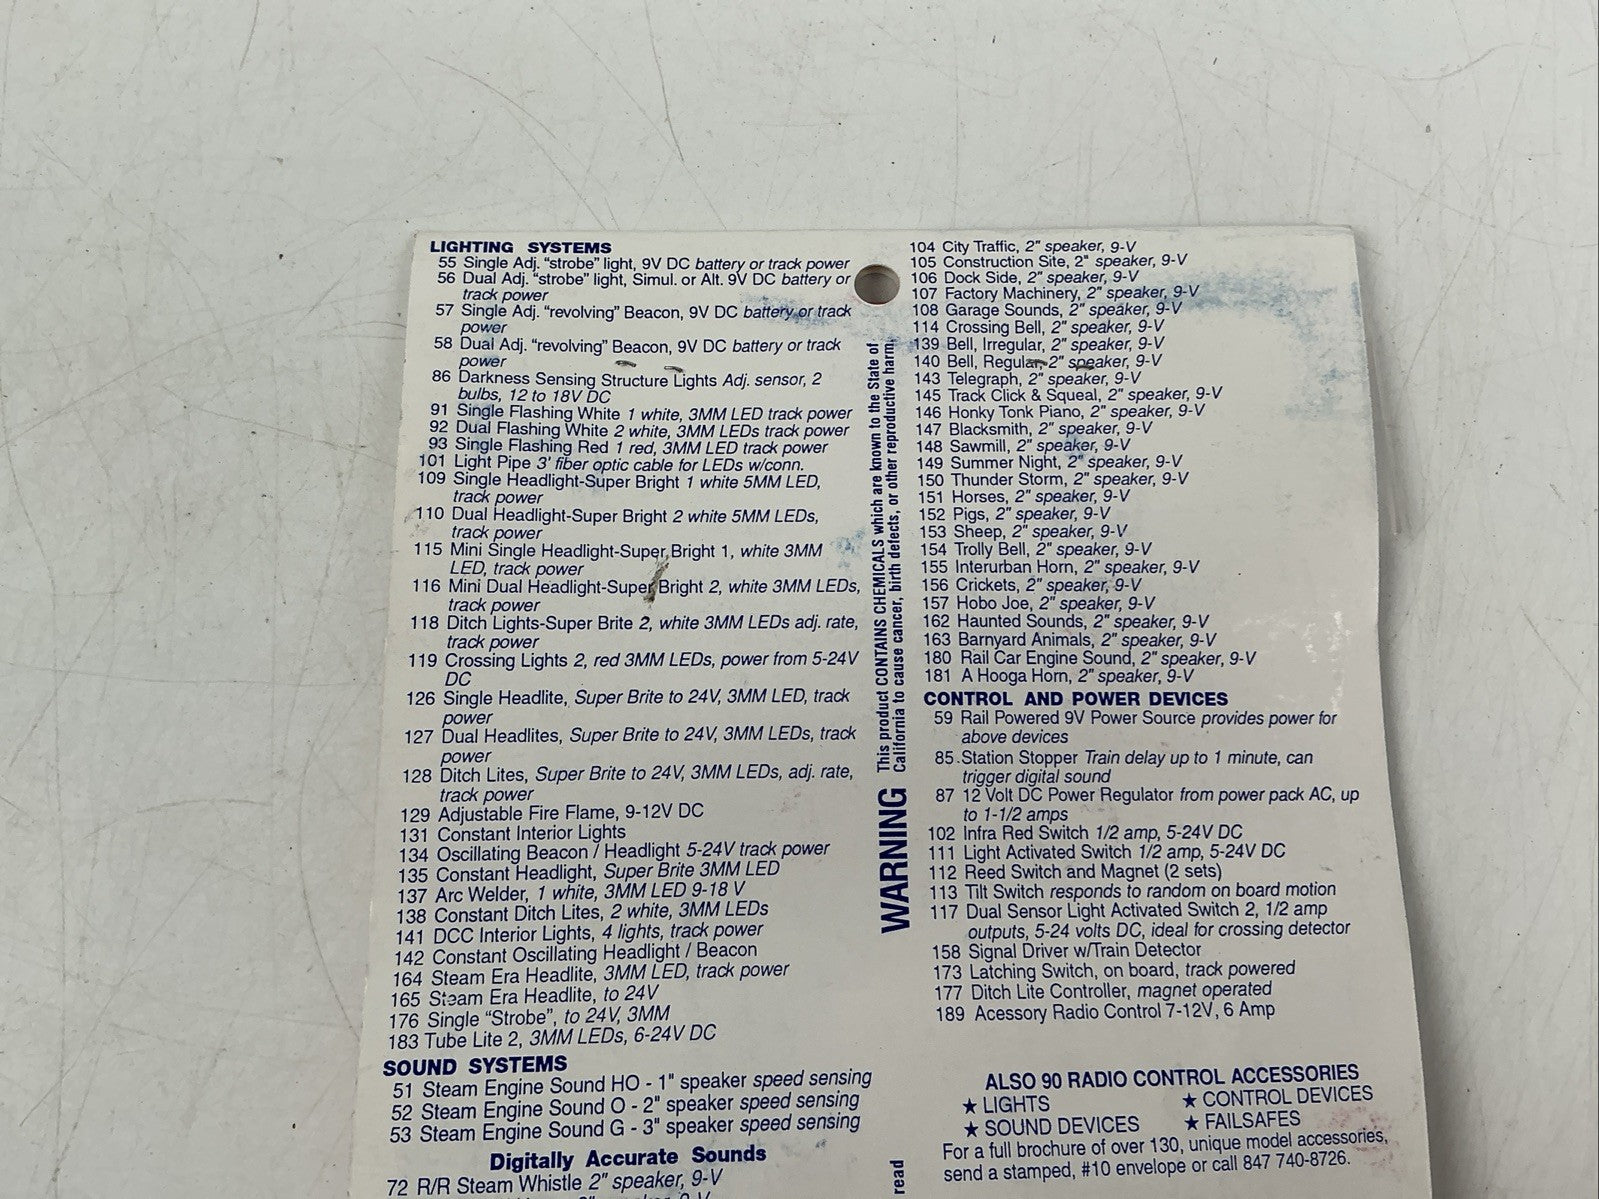 LIGHTING SYSTEMS
55 Single Adj. "strobe" light, 9V DC battery or track power
56 Dual Adj. "strobe" light, Simul. or Alt. 9V DC battery or
track power
57 Single Adj. "revolving" Beacon, 9V DC battery or track
power
58 Dual Adj. "revolving" Beacon, 9V DC battery or track
power
86 Darkness Sensing Structure Lights Adj. sensor, 2
bulbs, 12 to 18V DC
91 Single Flashing White 1 white, 3MM LED track power
92 Dual Flashing White 2 white, 3MM LEDs track power
93 Single Flashing Red 1 red, 3MM LED track power
101 Light Pipe 3' fiber optic cable for LEDs w/conn.
109 Single Headlight-Super Bright 1 white 5MM LED,
track power
110 Dual Headlight-Super Bright 2 white 5MM LEDs,
track power
115 Mini Single Headlight-Super Bright 1, white 3MM
LED, track power
116 Mini Dual Headlight-Super Bright 2, white 3MM LEDs,
track power
118 Ditch Lights-Super Brite 2, white 3MM LEDs adj. rate,
track power
119 Crossing Lights 2, red 3MM LEDs, power from 5-24V
DC
126 Single Headlite, Super Brite to 24V, 3MM LED, track
power
127 Dual Headlites, Super Brite to 24V, 3MM LEDs, track
power
128 Ditch Lites, Super Brite to 24V, 3MM LEDs, adj. rate,
track power
129 Adjustable Fire Flame, 9-12V DC
131 Constant Interior Lights
134 Oscillating Beacon / Headlight 5-24V track power
135 Constant Headlight, Super Brite 3MM LED
137 Arc Welder, 1 white, 3MM LED 9-18 V
138 Constant Ditch Lites, 2 white, 3MM LEDs
141 DCC Interior Lights, 4 lights, track power
142 Constant Oscillating Headlight / Beacon
164 Steam Era Headlite, 3MM LED, track power
165 Steam Era Headlite, to 24V
176 Single "Strobe", to 24V, 3MM
183 Tube Lite 2, 3MM LEDs, 6-24V DC
SOUND SYSTEMS
51 Steam Engine Sound HO - 1" speaker speed sensing
52 Steam Engine Sound O - 2" speaker speed sensing
53 Steam Engine Sound G - 3" speaker speed sensing
Digitally Accurate Sounds
72 R/R Steam Whistle 2" speaker, 9-V
WARNING This product CONTAINS CHEMICALS which are known to the State of
California to cause cancer, birth defects, or other reproductive harm,
read
104 City Traffic, 2" speaker, 9-V
105 Construction Site, 2" speaker, 9-V
106 Dock Side, 2" speaker, 9-V
107 Factory Machinery, 2" speaker, 9-V
108 Garage Sounds, 2" speaker, 9-V
114 Crossing Bell, 2" speaker, 9-V
139 Bell, Irregular, 2" speaker, 9-V
140 Bell, Regular, 2" speaker, 9-V
143 Telegraph, 2" speaker, 9-V
145 Track Click & Squeal, 2" speaker, 9-V
146 Honky Tonk Piano, 2" speaker, 9-V
147 Blacksmith, 2" speaker, 9-V
148 Sawmill, 2" speaker, 9-V
149 Summer Night, 2" speaker, 9-V
150 Thunder Storm, 2" speaker, 9-V
151 Horses, 2" speaker, 9-V
152 Pigs, 2" speaker, 9-V
153 Sheep, 2" speaker, 9-V
154 Trolly Bell, 2" speaker, 9-V
155 Interurban Horn, 2" speaker, 9-V
156 Crickets, 2" speaker, 9-V
157 Hobo Joe, 2" speaker, 9-V
162 Haunted Sounds, 2" speaker, 9-V
163 Barnyard Animals, 2" speaker, 9-V
180 Rail Car Engine Sound, 2" speaker, 9-V
181 A Hooga Horn, 2" speaker, 9-V
CONTROL AND POWER DEVICES
59 Rail Powered 9V Power Source provides power for
above devices
85 Station Stopper Train delay up to 1 minute, can
trigger digital sound
87 12 Volt DC Power Regulator from power pack AC, up
to 1-1/2 amps
102 Infra Red Switch 1/2 amp, 5-24V DC
111 Light Activated Switch 1/2 amp, 5-24V DC
112 Reed Switch and Magnet (2 sets)
113 Tilt Switch responds to random on board motion
117 Dual Sensor Light Activated Switch 2, 1/2 amp
outputs, 5-24 volts DC, ideal for crossing detector
158 Signal Driver w/Train Detector
173 Latching Switch, on board, track powered
177 Ditch Lite Controller, magnet operated
189 Acessory Radio Control 7-12V, 6 Amp
ALSO 90 RADIO CONTROL ACCESSORIES
★ LIGHTS ★ CONTROL DEVICES
★ SOUND DEVICES ★ FAILSAFES
For a full brochure of over 130, unique model accessories,
send a stamped, #10 envelope or call 847 740-8726.